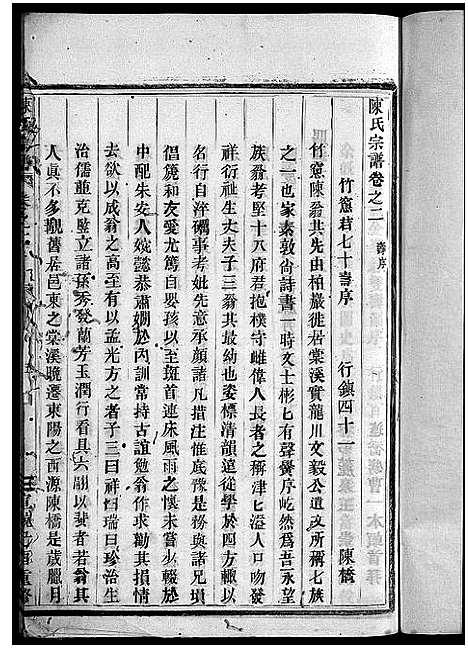 陳氏宗譜卷之二 壽序
竹窻君七十壽序 行鎮四十一 陳橋
竹窻陳翁其先由柏巖徙居棠溪實龍川文毅公遺文所稱七族
之一也家素敦尚詩書一時文士彬匕有聲黌序屹然爲吾永望
族翁考堅十八府君抱樸守雌偉人長者之稱津匕溢人口吻發
祥衍祉生丈夫子三翁其最幼也姿標清韻遠從學於四方輒以
名行自淬礪事考妣先意承顔諸凡措注惟底豫是務與諸兄塤
倡篪和友愛尤篤自嬰孩以至斑首連床風雨之懷未嘗少輟於
中配朱安人婉懿恭肅嫻於內訓常持古誼勉翁作求勷其損情
去欲以成翁之高至有以孟光方之者子三曰祥曰瑞曰珍治生
治儒竝克豎立諸孫秀發蘭芳玉潤行看具六翮以㷉者若翁其
人眞不多覯舊居邑東之棠溪晚遷東陽之西源陳橋是歲臘月